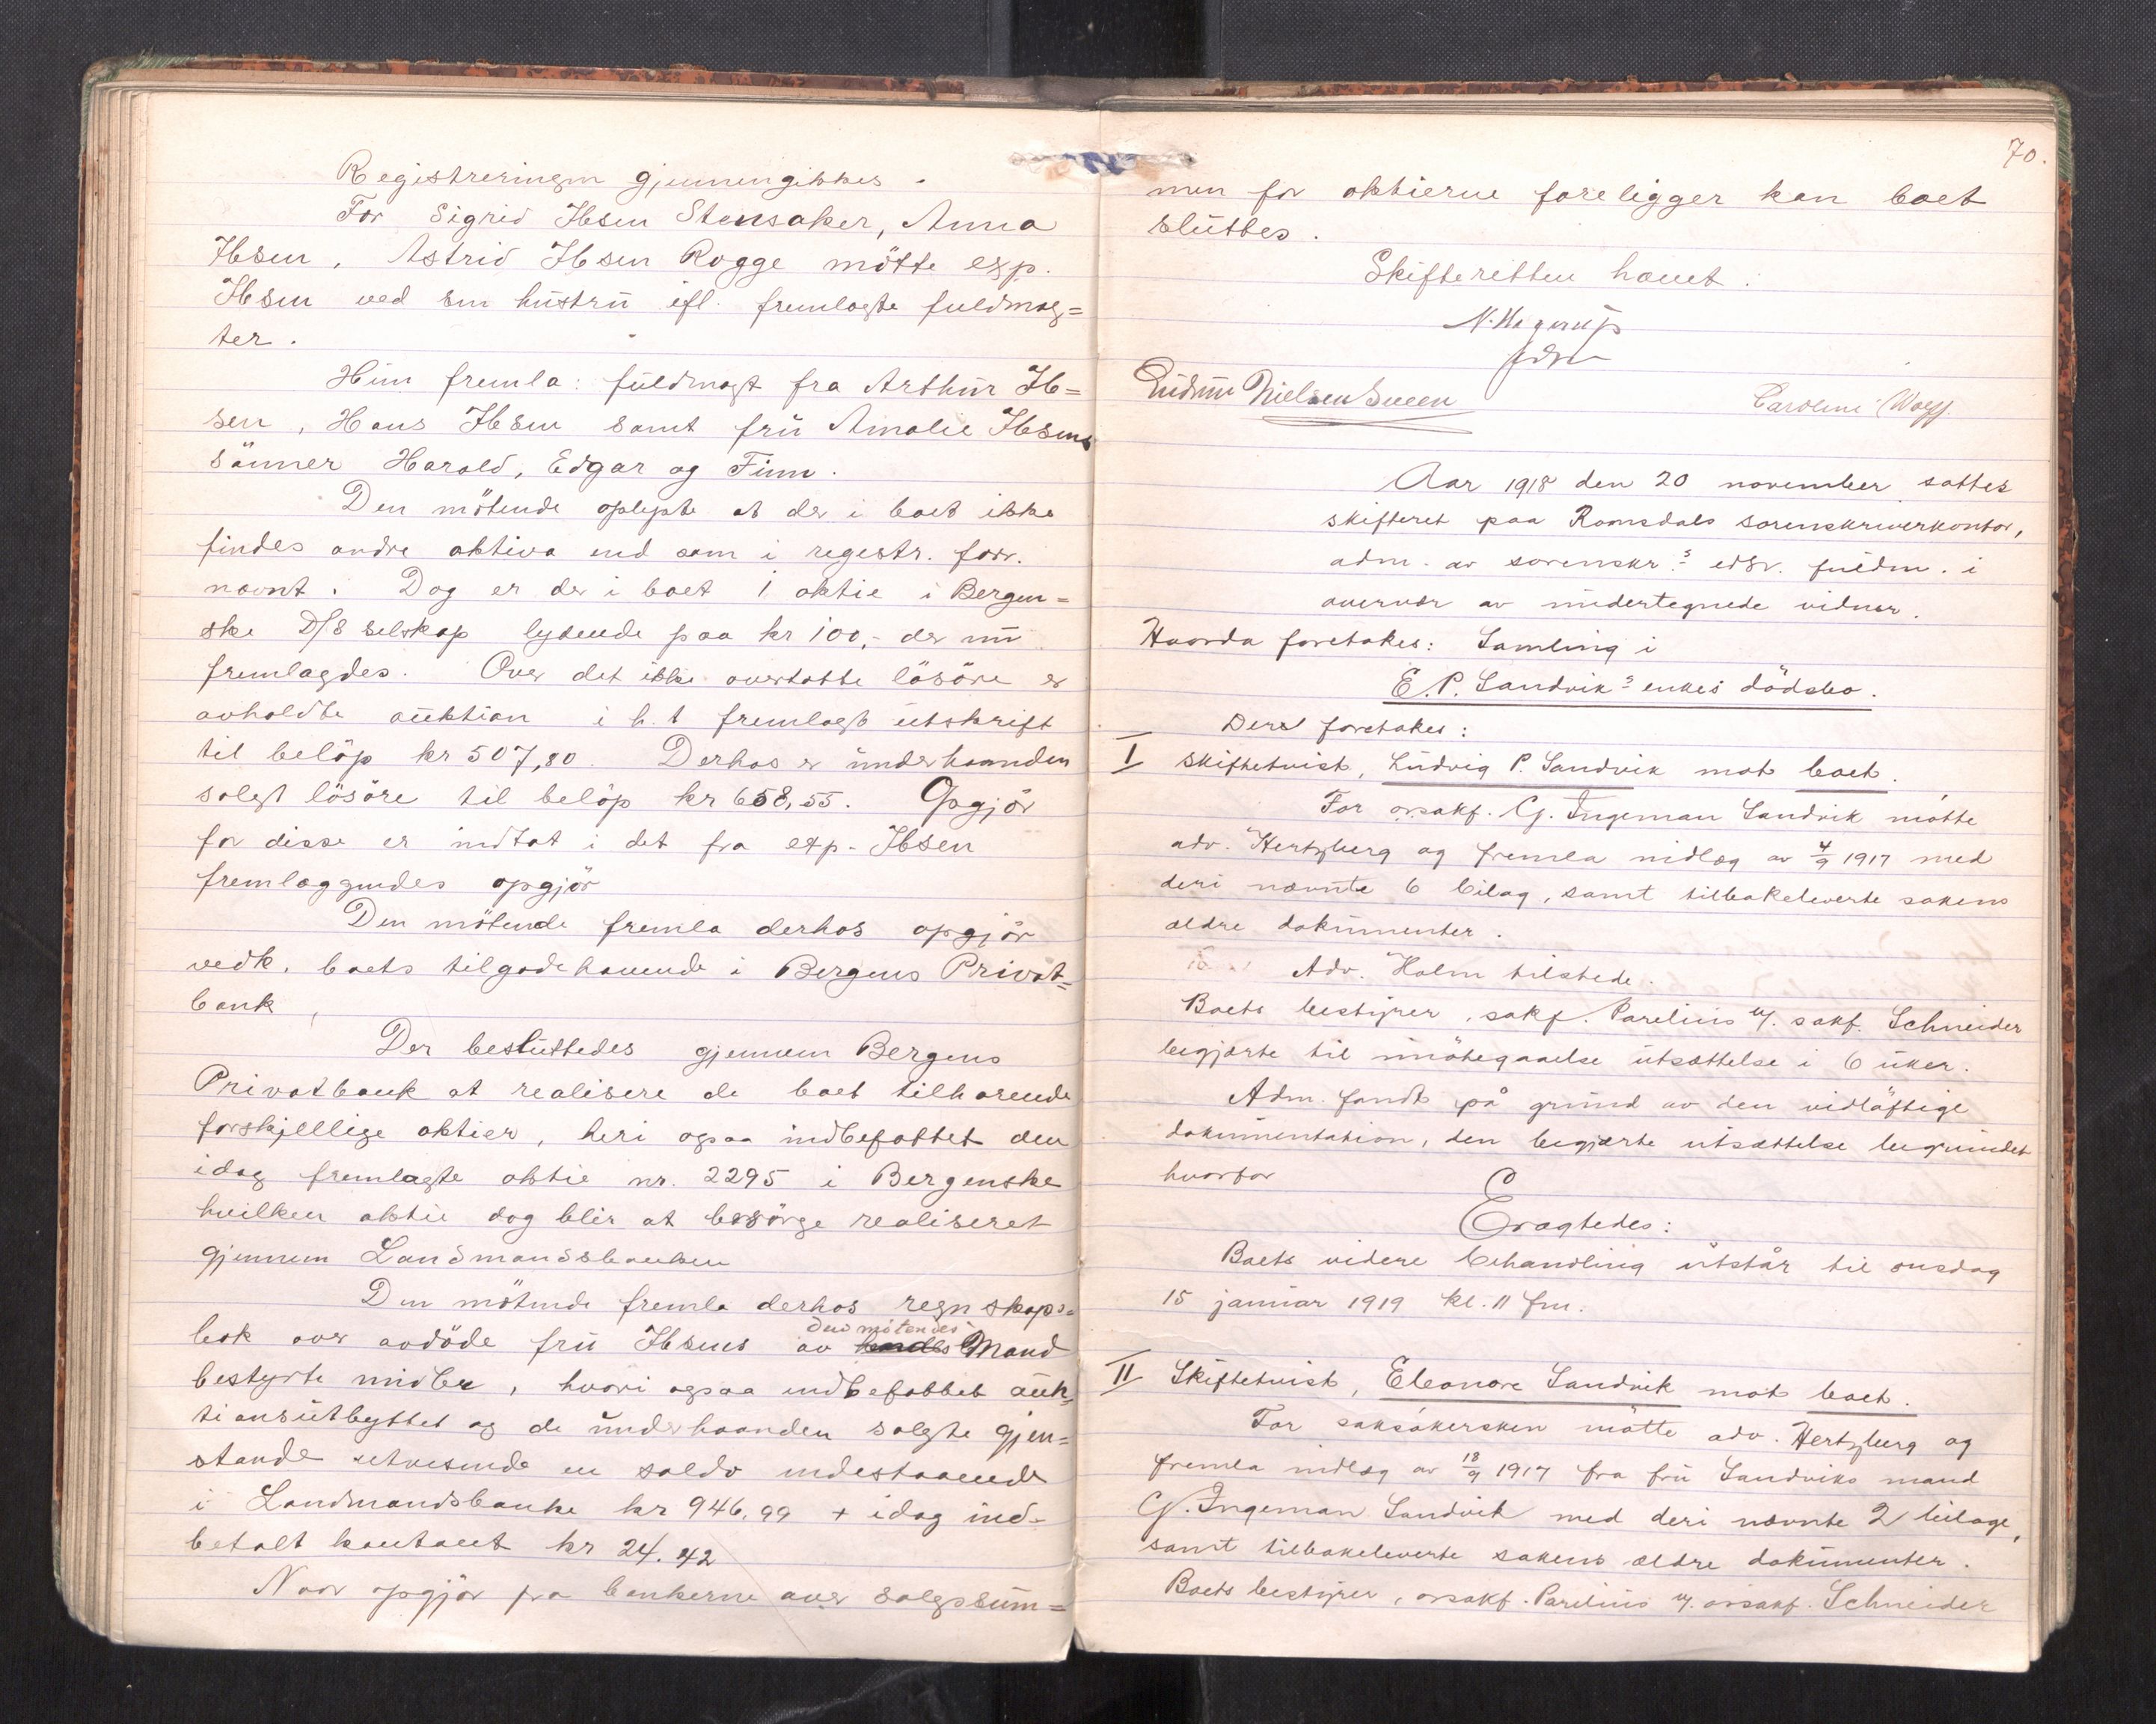 Registreringen gjennemgikkes.
For Sigrid Ibsen Stensaker, Anna
Ibsen, Astrid Ibsen Rogge mötte exp.
Ibsen ved sin hustru ifl. fremlagte fuldmag=
ter.
Hun fremla: fuldmagt fra Arthur Ib=
sen, Hans Ibsen samt fru Amalie Ibsens
sönner Harald, Edgar og Finn.
Den mötende oplyste at der i boet ikke
findes andre aktiva end som i registr. forr.
nævnt. Dog er der i boet 1 aktie i Bergen=
ske D/S selskap lydende paa kr 100,- der nu
fremlagdes. Over det ikke overtatte lösöre er
avholdte auktion i h.t fremlagt utskrift
til belöp kr 507,80. Derhos er underhaanden
solgt lösöre til belöp kr 658,55. Opgjör
for disse er indtat i det fra exp. Ibsen
fremlæggendes opgjör
Den mötende fremla derhos opgjör
vedk. boets tilgodehavende i Bergens Privat=
bank,
Der besluttedes gjennem Bergens
Privatbank at realisere de boet tilhørende
forskjellige aktier, heri ogsaa indbefattet den
idag fremlagte aktie nr. 2295 i Bergenske
hvilken aktie dog blir at besörge realiseret
gjennem Landmandsbanken
Den mötende fremla derhos regnskaps=
bok over avdöde fru Ibsens av hendes den mötendes Mand
bestyrte midler, hvori ogsaa indbefattet auk=
tionsutbyttet og de underhaanden solgte gjen=
stande utvisende en saldo indestaaende
i Landmandsbanke kr 946,99 + idag ind-
betalt kontant kr 24.42
Naar opgjör fra bankerne over salgssum=
70.
men for aktierne foreligger kan boet
sluttes.
Skifteretten hævet.
N. Hagerup
fdm
Gudrun Nielsen Sveen
Caroline Wolff.
Aar 1918 den 20 november sattes
skifteret paa Romsdals sorenskriverkontor,
adm. av sorenskr.s edsv. fuldm. i
overvær av undertegnede vidner.
Hvorda foretakes: Samling i
E. P. Sandviks enkes dödsbo.
Der foretakes:
I Skiftetvist, Ludvig P. Sandvik mot boet.
For orsakf. G. Ingeman Sandvik mötte
adv. Hertzberg og fremla indlæg av 4/9 1917 med
deri nævnte 6 bilag, samt tilbakeleverte sakens
ældre dokumenter.
Adv. Holm tilstede.
Boets bestyrer, sakf. Parelius v/. sakf. Schneider
begjærte til imötegaaelse utsættelse i 6 uker.
Adm. fandt på grund av den vidlöftige
dokumentation, den begjærte utsættelse begrundet
hvorfor
Eragtedes:
Boets videre behandling utstår til onsdag
15 januar 1919 kl. 11 fm.
II Skiftetvist, Eleonore Sandvik mot boet.
For saksökersken mötte adv. Hertzberg og
fremla indlæg av 18/9 1917 fra fru Sandviks mand
G. Ingeman Sandvik med deri nævnte 2 bilage,
samt tilbakeleverte sakens ældre dokumenter.
Boets bestyrer, orsakf. Parelius v/. orsakf. Schneider